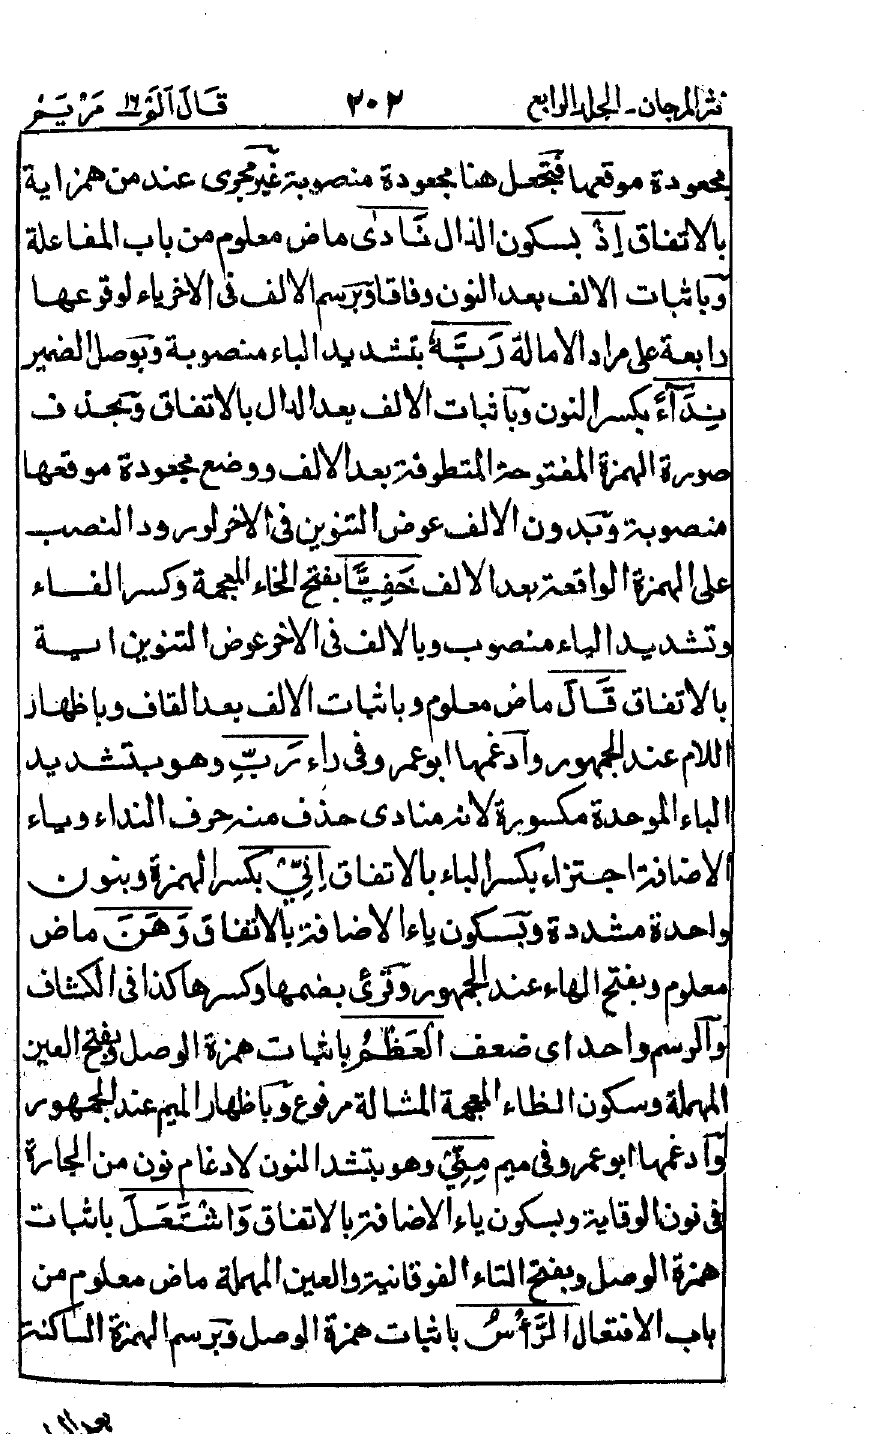 نثر المرجان - الجلد الرابع ٣٠٢ قَالَ اَلَمْ ١٦ مَرْيَمْ
مجعودة موقعها فتجعل هنا مجعودة منصوبة غير مجرى عند من همز اية
بالاتفاق اِذْ بسكون الذال نَادٰى ماض معلوم من باب المفاعلة
وباثبات الالف بعد النون وفاقا وبرسم الالف فى الاخر ياء لوقوعها
رابعة على مراد الامالة رَبَّهٗ بتشديد الباء منصوبة وبوصل الضمير
نِدَآءً بكسر النون وباثبات الالف بعد الدال بالاتفاق وبحذف
صورة الهمزة المفتوحة المتطرفة بعد الالف ووضع مجعودة موقعها
منصوبة وبدون الالف عوض التنوين فى الاخر لورود النصب
على الهمزة الواقعة بعد الالف خَفِيًّا بفتح الخاء المعجمة وكسر الفاء
وتشديد الياء منصوب وبالالف فى الاخر عوض التنوين اية
بالاتفاق قَالَ ماض معلوم وباثبات الالف بعد القاف وباظهار
اللام عند الجمهور وادغمها ابو عمرو فى راء رَبِّ وهو بتشديد
الباء الموحدة مكسورة لانه منادى حذف منه حرف النداء وياء
الاضافة اجتزاء بكسر الباء بالاتفاق اِنِّىْ بكسر الهمزة وبنون
واحدة مشددة وبسكون ياء الاضافة بالاتفاق وَهَنَ ماض
معلوم وبفتح الهاء عند الجمهور وقرئ بضمها وكسرها كذا فى الكشاف
والرسم واحد اى ضعف الْعَظْمُ باثبات همزة الوصل وبفتح العين
المهملة وسكون الظاء المعجمة المشالة مرفوع وباظهار الميم عند الجمهور
وادغمها ابو عمرو فى ميم مِنِّىْ وهو بتشد النون لادغام نون من الجارة
فى نون الوقاية وبسكون ياء الاضافة بالاتفاق وَاشْتَعَلَ باثبات
همزة الوصل وبفتح التاء الفوقانية والعين المهملة ماض معلوم من
باب الافتعال الرَّأْسُ باثبات همزة الوصل وبرسم الهمزة الساكنة